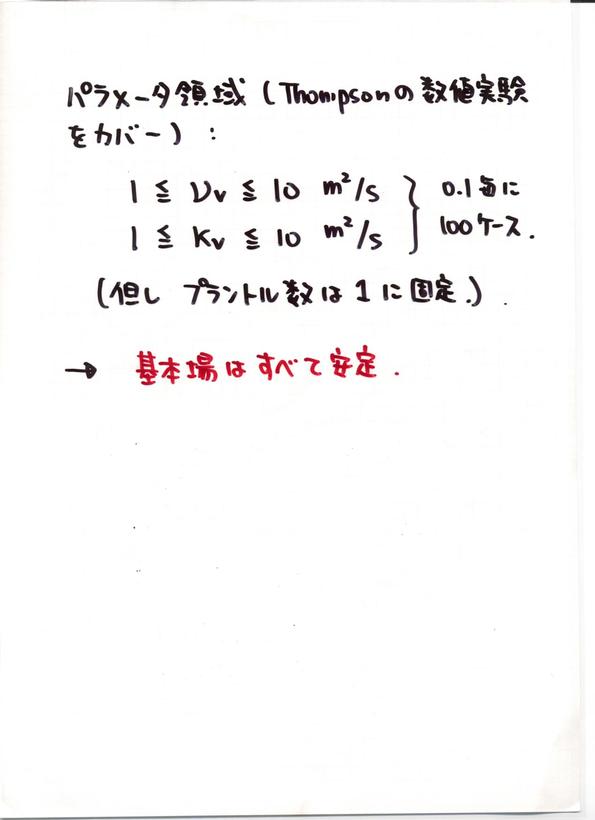 パラメータ領域 (Thompsonの数値実験
をカバー) :
1 ≦ νv ≦ 10 m²/s
1 ≦ κv ≦ 10 m²/s
0.1毎に
100ケース.
(但し プラントル数は 1 に固定.) .
→ 基本場はすべて安定.